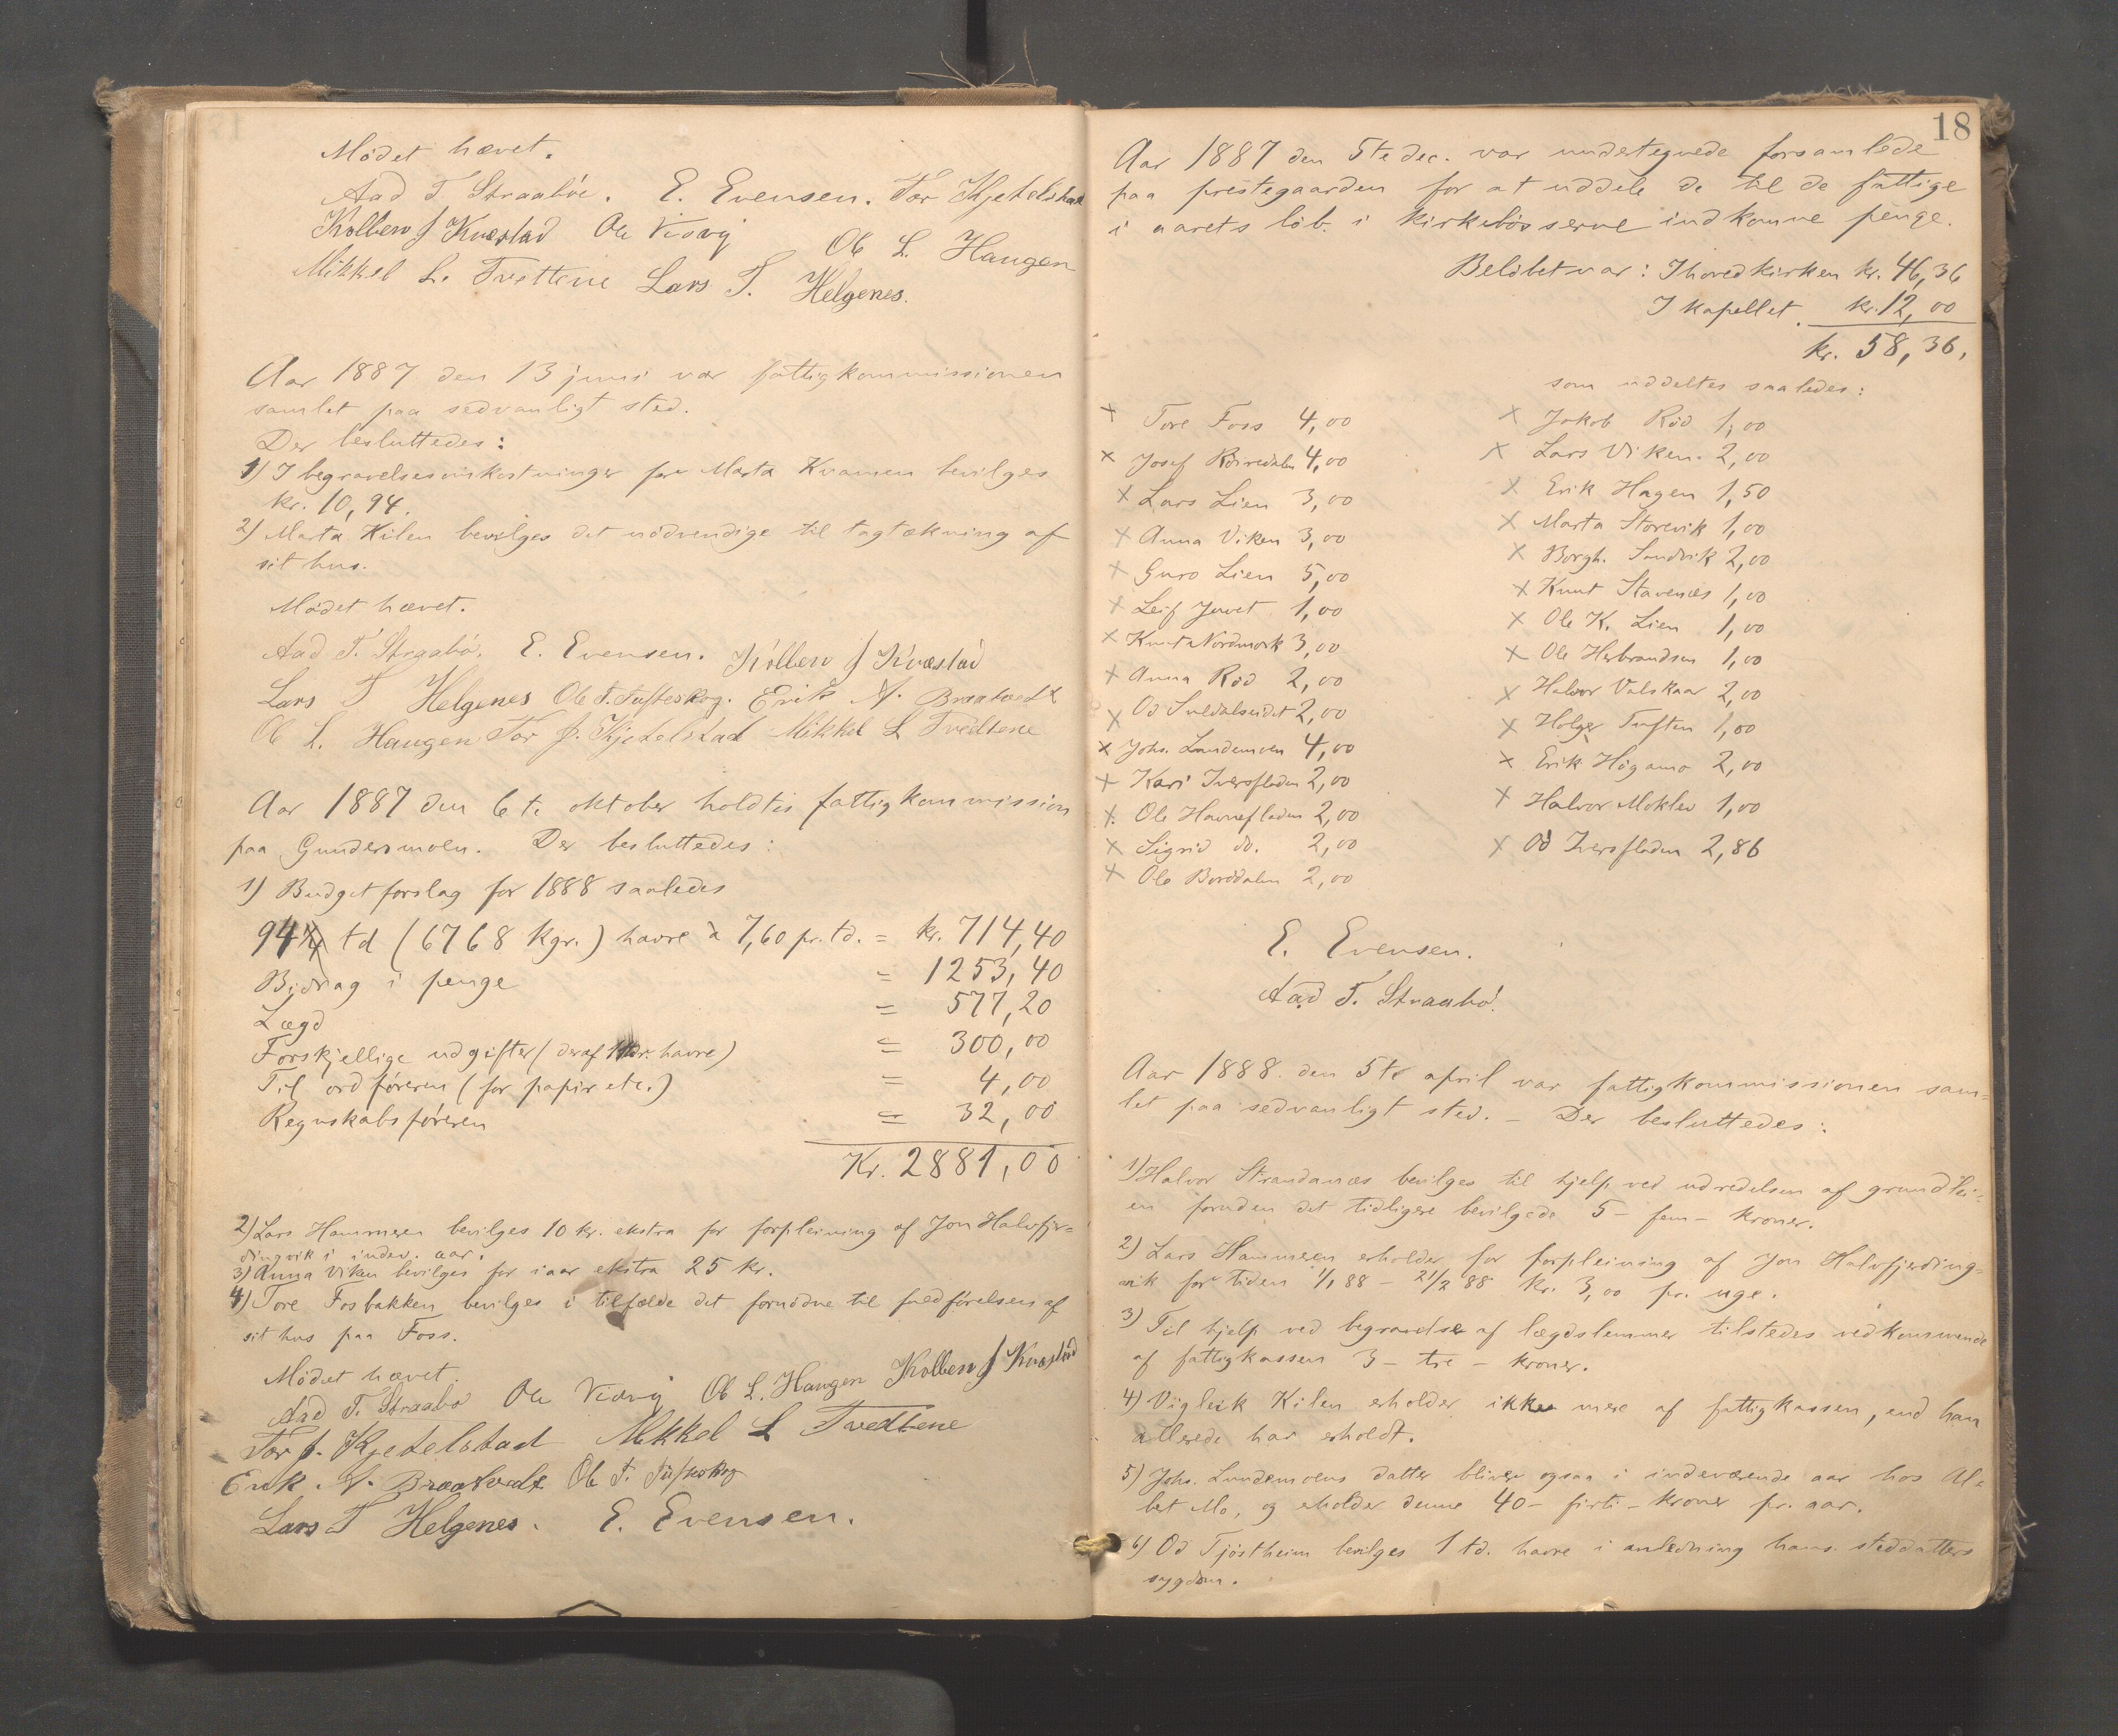 Mödet hævet.
Aad T. Straaböe. E. Evensen. Tor Kjetelstad
Kolben J Kvæstad Ole Vidvig
Ole L. Haugen
Mikkel L. Tvettene Lars T. Helgenes.
Aar 1887 den 13 juni var fattigkommissionen
samlet paa sedvanligt sted.
Der besluttedes:
1) I begravelsesomkostninger for Marta Kvamen bevilges
kr. 10,94.
2) Marta Kilen bevilges det nödvendige til tagtækning af
sit hus.
Mödet hævet.
Aad T. Straabö. E. Evensen. Kolben J Kvæstad
Lars T Helgenes Ole T. Tufteskog. Erik N. Braatvedt
Ole L. Haugen Tor J. Kjetelstad Mikkel L Tvedtene
Aar 1887 den 6te oktober holdtes fattigkommission
paa Gundersmoen. Der besluttedes:
1) Budgetforslag for 1888 saaledes
94 td (6768 kgr.) havre à 7,60 pr. td. = kr. 714,40
Bidrag i penge = 1253,40
Lægd = 577,20
Forskjellige udgifter (deraf havre) = 300,00
Til ordföreren (for papir etc.) = 4,00
Regnskabsföreren = 32,00
Kr. 2881,00
2) Lars Hammeren bevilges 10 kr. ekstra for forpleining af Jon Halvfjer=
dingvik i indev. aar.
3) Anna Viken bevilges for iaar ekstra 25 kr.
4) Tore Fosbakken bevilges i tilfælde det fornödne til fuldförelsen af
sit hus paa Foss.
Mödet hævet.
Aad T. Straabö Ole Vidvig Ole L. Haugen Kolben J Kvæstad
Tor J. Kjetelstad Mikkel L Tvedtene
Erik N. Braatvedt Ole T. Tufteskog
Lars T Helgenes. E. Evensen.
18
Aar 1887 den 5te dec. var undertegnede forsamlede
paa prestegaarden for at uddele de til de fattige
i aarets löb i kirkebösserne indkomne penge.
Belöbet var: I hovedkirken kr. 46,36
I kapellet. kr. 12,00
kr. 58,36.
som uddeltes saaledes:
x Tore Foss 4,00
x Josef 4,00
x Lars Lien 3,00
x Anna Viken 3,00
x Guro Lien 5,00
x Leif Jovet 1,00
x Knut Nordmork 3,00
x Anna Röd 2,00
x Od Suldalseidet 2,00
x Johs. Lundemoen 4,00
x Kari Iversfladen 2,00
x Ole Havrefladen 2,00
x Sigrid do. 2,00
x Ole Borddalen 2,00
x Jakob Röd 1,00
x Lars Viken. 2,00
x Erik Hagen 1,50
x Marta Storevik 1,00
x Borgh. Sandvik 2,00
x Knut Stavenes 1,00
x Ole K. Lien 1,00
x Ole Herbrandsen 1,00
x Halvor Valskaar 2,00
x Holger Tuften 1,00
x Erik Högamo 2,00
x Halvor Moklev 1,00
x Od Iversfladen 2,86
E. Evensen.
Aad T. Straabö.
Aar 1888 den 5te april var fattigkommissionen sam=
let paa sedvanligt sted. – Der besluttedes:
1) Halvor Strandanæs bevilges til hjelp ved udredelsen af grundlei=
en foruden det tidligere bevilgede 5 – fem – kroner.
2) Lars Hammeren erholder for forpleining af Jon Halvfjerding=
vik for tiden 1/1 88 – 21/2 88 kr. 3,00 pr. uge.
3) Til hjelp ved begravelse af lægdslemmer tilstedes vedkommende
af fattigkassen 3 – tre – kroner.
4) Vigleik Kilen erholder ikke mere af fattigkassen, end han
allerede har erholdt.
5) Johs. Lundemoens datter bliver ogsaa i indeværende aar hos Al=
bet Mo, og erholder denne 40 – firti – kroner pr. aar.
6) Od Tjöstheim bevilges 1 td. havre i anledning hans steddatters
sygdom.